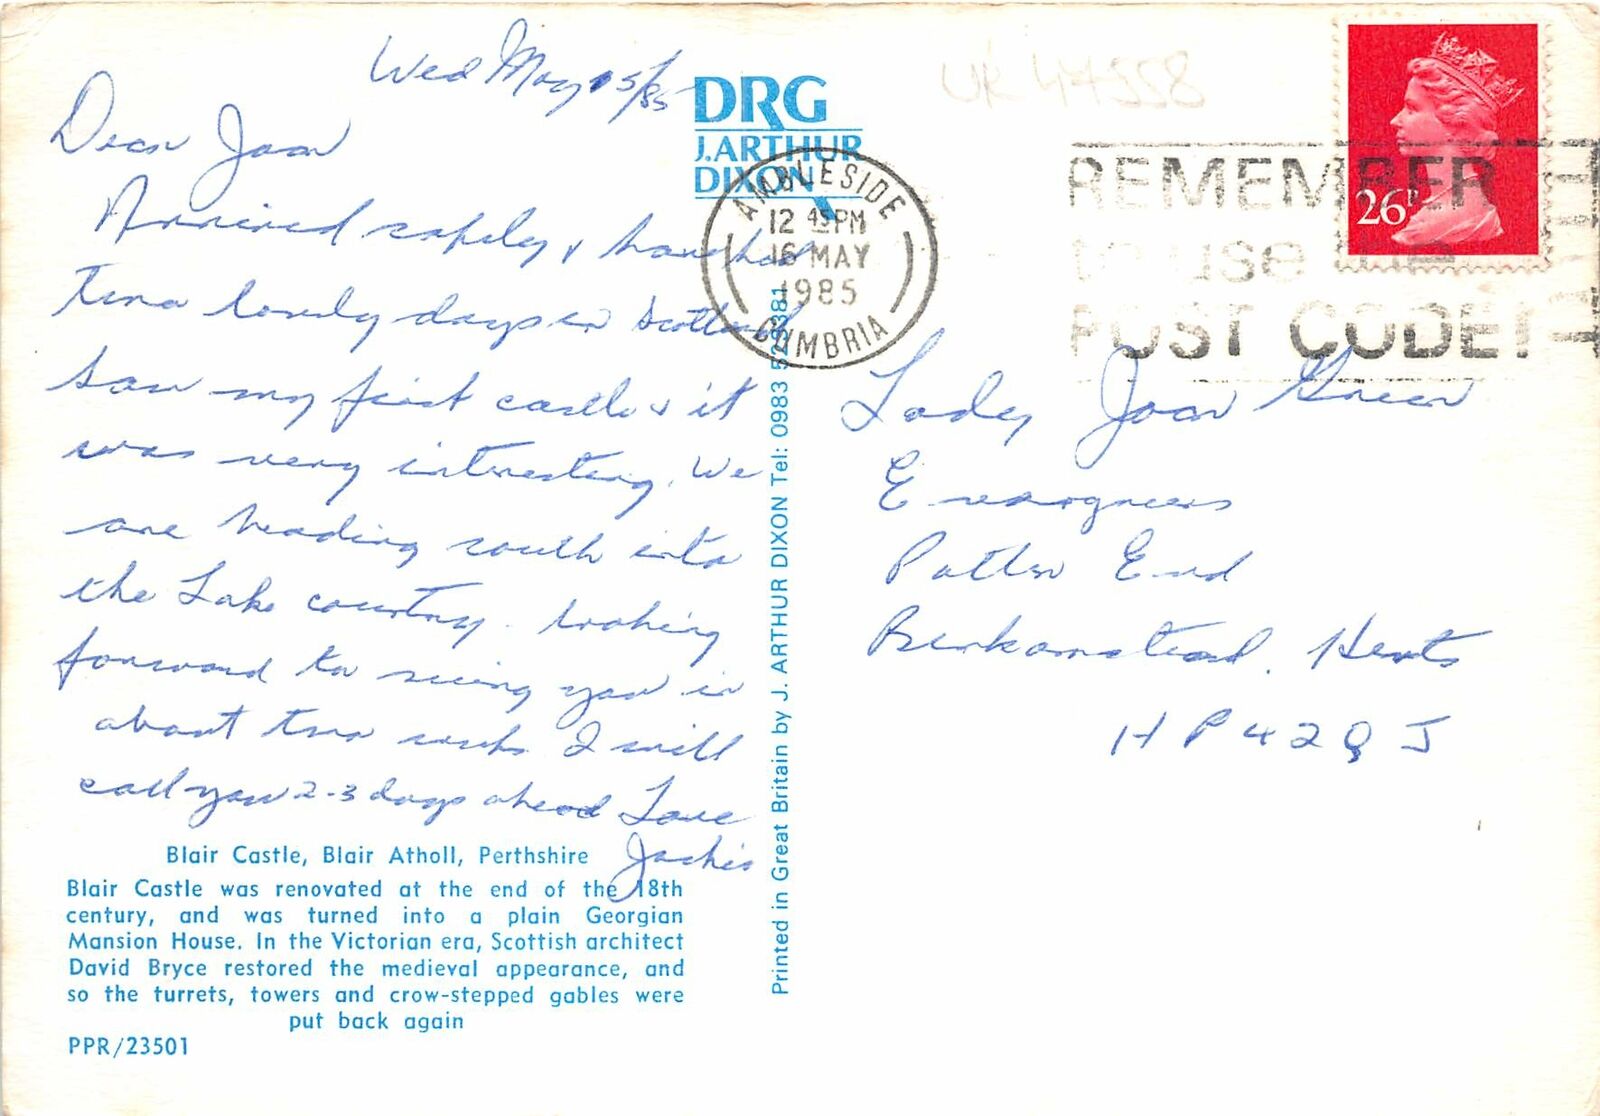 Wed May 15/85
Dear Joan
Arrived safely & have had
two lovely days in Scotland
Saw my first castle & it
was very interesting. We
are heading south into
the Lake country. Looking
forward to seeing you in
about two weeks. I will
call you 2-3 days ahead Love
Jackie
Blair Castle, Blair Atholl, Perthshire
Blair Castle was renovated at the end of the 18th
century, and was turned into a plain Georgian
Mansion House. In the Victorian era, Scottish architect
David Bryce restored the medieval appearance, and
so the turrets, towers and crow-stepped gables were
put back again
PPR/23501
DRG
J.ARTHUR
DIXON
Printed in Great Britain by J. ARTHUR DIXON Tel: 0983 523381
AMBLESIDE
12 45PM
16 MAY
1985
CUMBRIA
UK 47558
REMEMBER
to use the
POST CODE!
26P
Lady Joan Green
Evergreens
Potten End
Berkamstead. Herts
HP42QJ